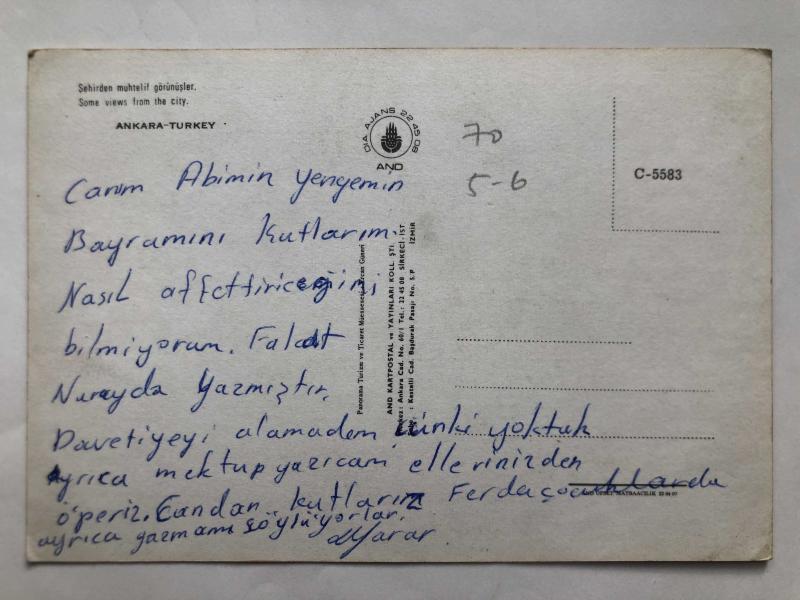 Şehirden muhtelif görünüşler.
Some views from the city.
ANKARA-TURKEY
DIA AJANS 22 45 08
AND
70
5-6
C-5583
Canım Abimin yengemin
Bayramını kutlarım.
Nasıl affettiriceğimi
bilmiyorum. Falat
Nurayda Yazmıştır.
Davetiyeyi alamadem çünki yoktuk
Ayrıca mektup yazıcam ellerinizden
öperiz. Candan kutlarız Ferda çocuklarda
ayrıca yazmamı söylüyorlar.
Panorama Turizm ve Ticaret Müessesesi Ercan Güneri
AND KARTPOSTAL ve YAYINLARI KOLL. ŞTİ.
Merkez: Ankara Cad. No. 60/1 Tel.: 22 45 08 SİRKECİ-İST
: Kestelli Cad. Başdurak Pasajı No. 5.P İZMİR
MATBAACILIK